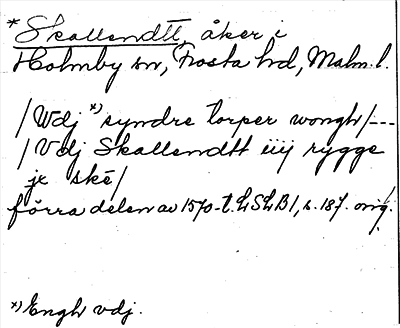 *Skallendtt, åker i
Holmby sn, Frosta hd, Malm. l.
/Wdj *) syndre torper wongh/---
/Vdj Skallendtt iiij rygge
jx skē/
förra delen av 1570-t. LSLB1, s. 187. orig.
*) Engh vdj.